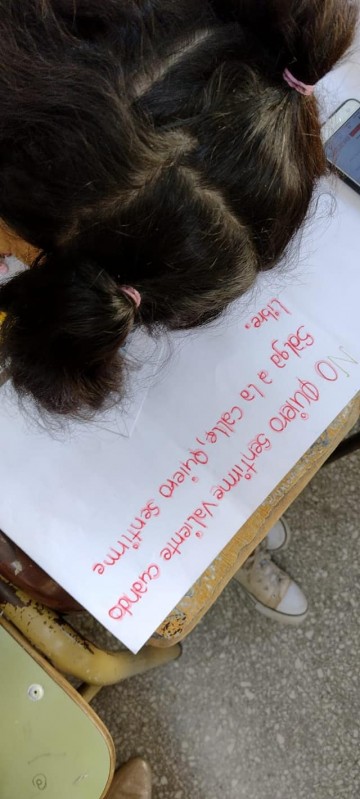 NO Quiero sentirme Valiente cuando
Salga a la calle, Quiero Sentirme
Libre.